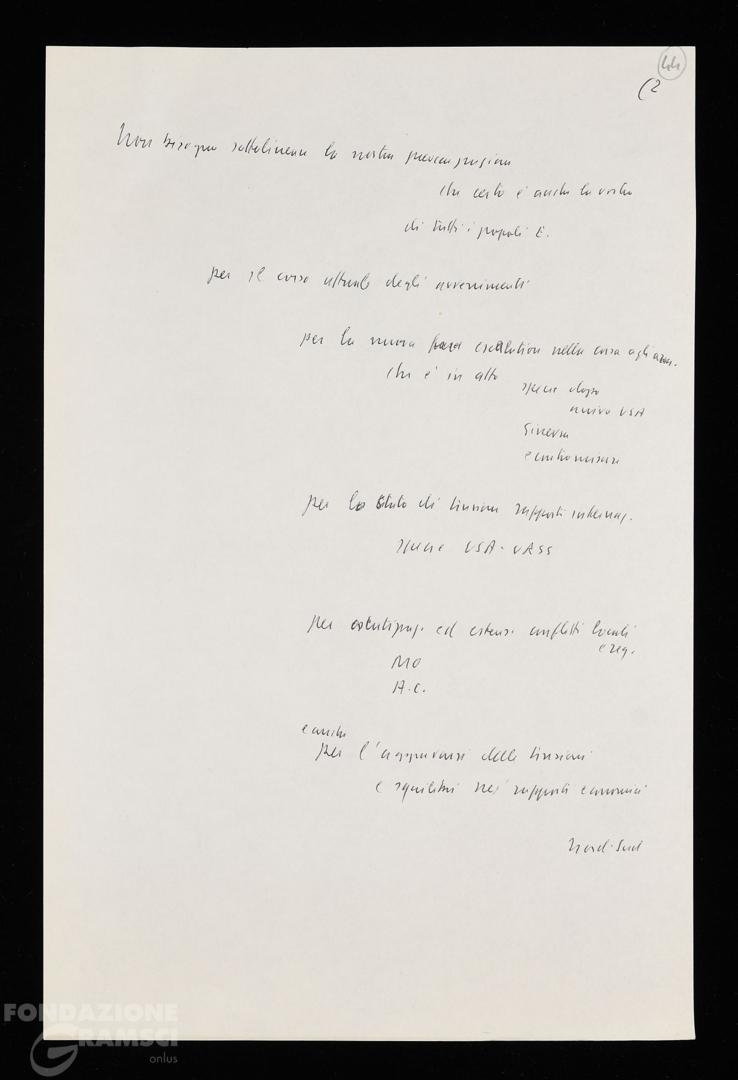 44
(2
Non bisogna sottolineare la nostra preoccupazione
che certo è anche la vostra
di tutti i popoli E.
per il corso attuale degli avvenimenti
per la nuova escalation nella corsa agli arm.
che è in atto specie dopo
arrivo USA
Ginevra
e contromisure
per lo stato di tensione rapporti internaz.
specie USA-URSS
per ed estens. conflitti locali
e reg.
MO
A.C.
e anche
per l'aggravarsi delle tensioni
e squilibri nei rapporti economici
Nord-Sud
FONDAZIONE
GRAMSCI
onlus